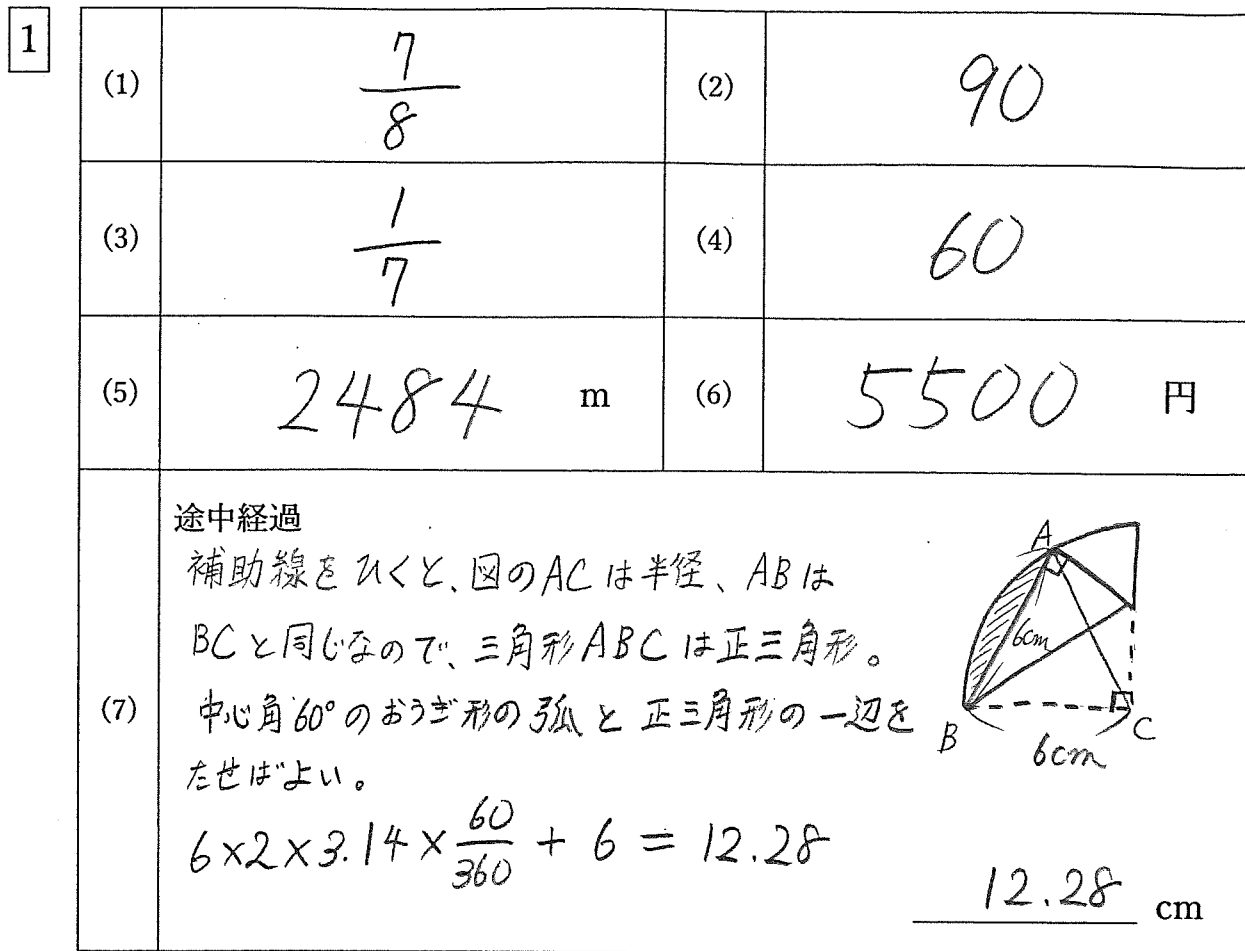 1
(1) 7/8 (2) 90
(3) 1/7 (4) 60
(5) 2484 m (6) 5500 円
(7) 途中経過
補助線をひくと、図のACは半径、ABは
BCと同じなので、三角形ABCは正三角形。
中心角60°のおうぎ形の弧と正三角形の一辺を
たせばよい。
6×2×3.14×60/360 + 6 = 12.28
A
6cm
B
C
6cm
12.28 cm